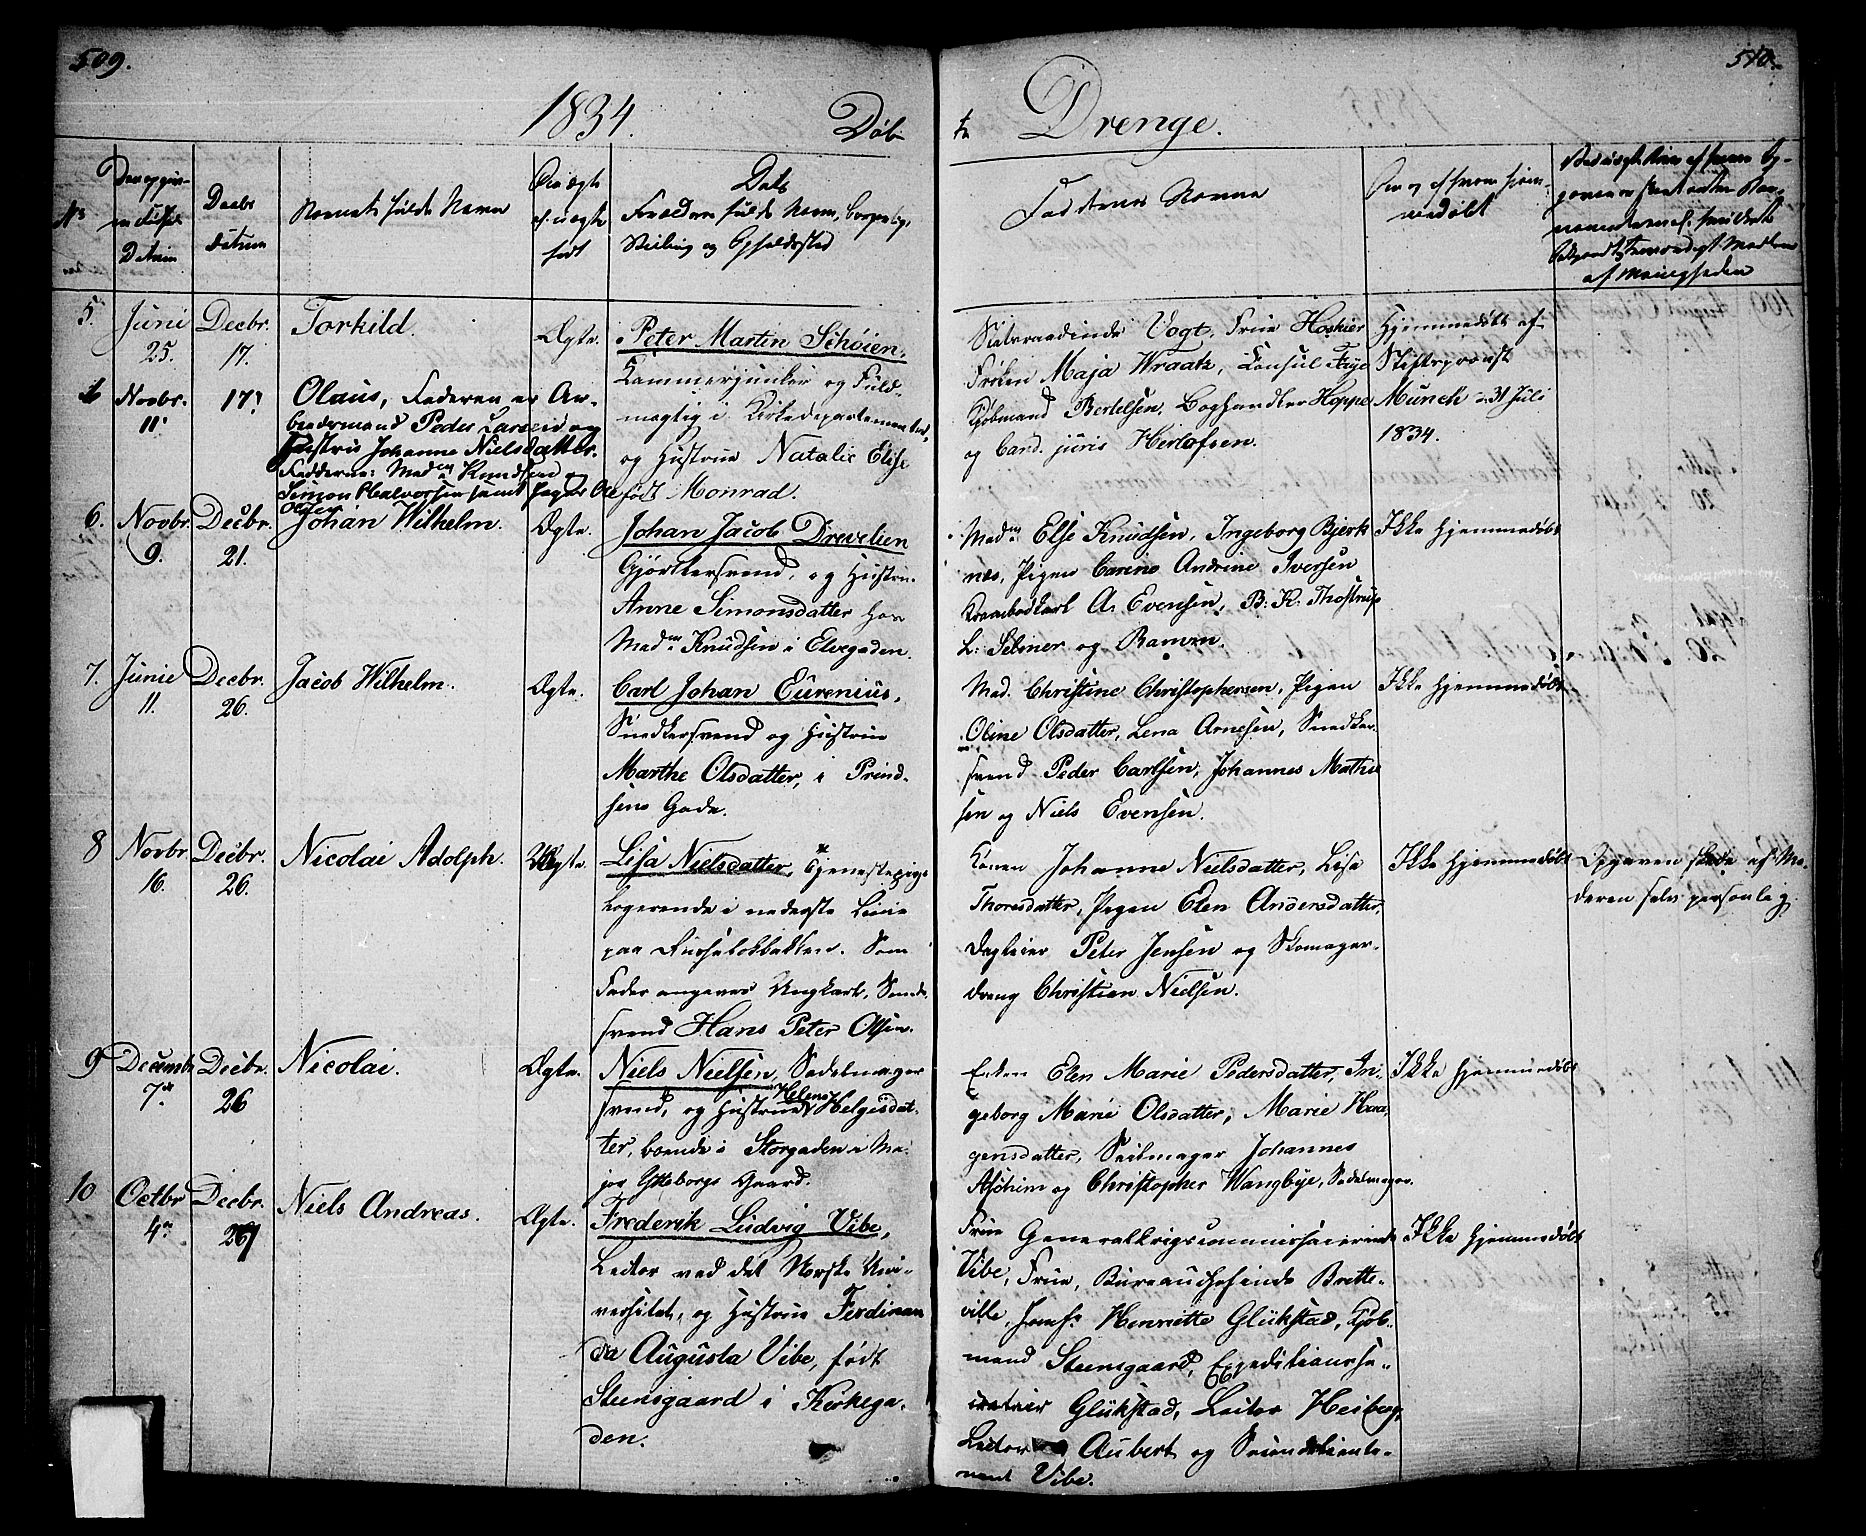 509.
510.
1834.
Døb-
te
Drenge.
No
Den opgiv-
ne Fødsels
Datum
Daabs
datum
Barnets fulde Navn
Om ægte
el. uægte
født
Dets
Forældres fulde Navn, borgerlige
Stilling og Opholdssted
Faddernes Navne
Om og af hvem hjem-
medøbt
af Menigheden
5.
Juni
25.
Decbr.
17.
Torkild.
Ægte.
Peter Martin Schøien,
Kammerjunker og Fuld-
mægtig i Kirkedepartementet,
og Hustrue Natalie Elise
født Monrad.
Statsraadinde Vogt, Frue Høskier
Frøken Maja Wraatz, Consul Frye
Kjøbmand Bertelsen, Boghandler Hoppe
og Cand. juris Herlofsen.
Hjemmedøbt af
Stiftsprovst
Munch d. 31 Juli
1834.
Novbr.
11.
17.
Olaus, Faderen er Ar-
beidsmand Peder Larsen og
Hustru Johanne Nielsdatter.
Fadderne: Madm Knudsen og
Simon Halvorsen samt Jager Ole
Olsen
6.
Novbr.
9.
Decbr.
21.
Johan Wilhelm.
Ægte.
Johan Jacob Drevelien
Gjørtlersvend, og Hustru
Anne Simonsdatter hos
Madm Knudsen i Elvegaden.
Madm Else Knudsen, Ingeborg Bjerk
næs, Pigen Carine Andrine Iversen
A. Evensen, B. K. Thostrup
L. Selmer og Ramm.
Ikke hjemmedøbt
7.
Junie
11.
Decbr.
26.
Jacob Wilhelm.
Ægte.
Carl Johan Eurenius,
Snedkersvend og Hustrue
Marthe Olsdatter, i Prind-
sens Gade.
Mad. Christine Christophersen, Pigen
Oline Olsdatter, Lena Arnesen, Snedker-
svend Peder Carlsen, Johannes Mathie
sen og Niels Evensen.
Ikke hjemmedøbt
8
Novbr
16.
Decbr.
26.
Nicolai Adolph.
Uægte.
Lisa Nielsdatter, Tjenestepige
Logerende i nederste Linie
paa Fierdelokbakken. Som
Fader angaves Ungkarl, Smede
svend Hans Peter Olsen.
Konen Johanne Nielsdatter, Lisa
Thoresdatter, Pigen Elen Andersdatter,
Dagleier Peter Jensen og Skomager-
dreng Christian Nielsen.
Ikke hjemmedøbt
Opgaven skede af Mo-
deren selv personlig
9
Decembr
7de
Decbr.
26
Nicolai.
Ægte.
Niels Nielsen, Sadelmager
svend, og Hustrue Helene Helgesdat-
ter, boende i Storgaden i Ma-
jor Gøteborgs Gaard.
Enken Elen Marie Pedersdatter, In-
geborg Marie Olsdatter, Marie Haa-
gensdatter, Seilmager Johannes
Aschim og Christopher Wangbye, Sadelmager.
Ikke hjemmedøbt
10
Octbr
4de
Decbr.
27
Niels Andreas.
Ægte.
Frederik Ludvig Vibe,
Lector ved det Norske Uni-
versitet, og Hustrue Ferdinan
da Augusta Vibe, født
Steensgaard i Kirkega-
den.
Frue Generalkrigscommissairinde
Vibe, Frue, Bureauchefinde Brette-
ville, Jomf. Henriette Glükstad, Kjøb-
mand Steensgaard, Expeditionsse-
cretair Glükstad, Lector Heiberg,
Lector Aubert og Secondlieute-
nant Vibe.
Ikke hjemmedøbt